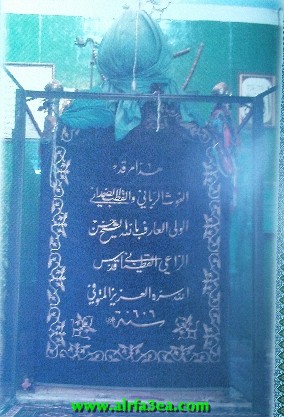 هذا مرقد
الغوث الرباني والقطب الصمداني
الولي العارف بالله الشيخ حسن
الراعي القطناني قدس
الله سره العزيز المتوفي
سنة
www.alrfa3ea.com